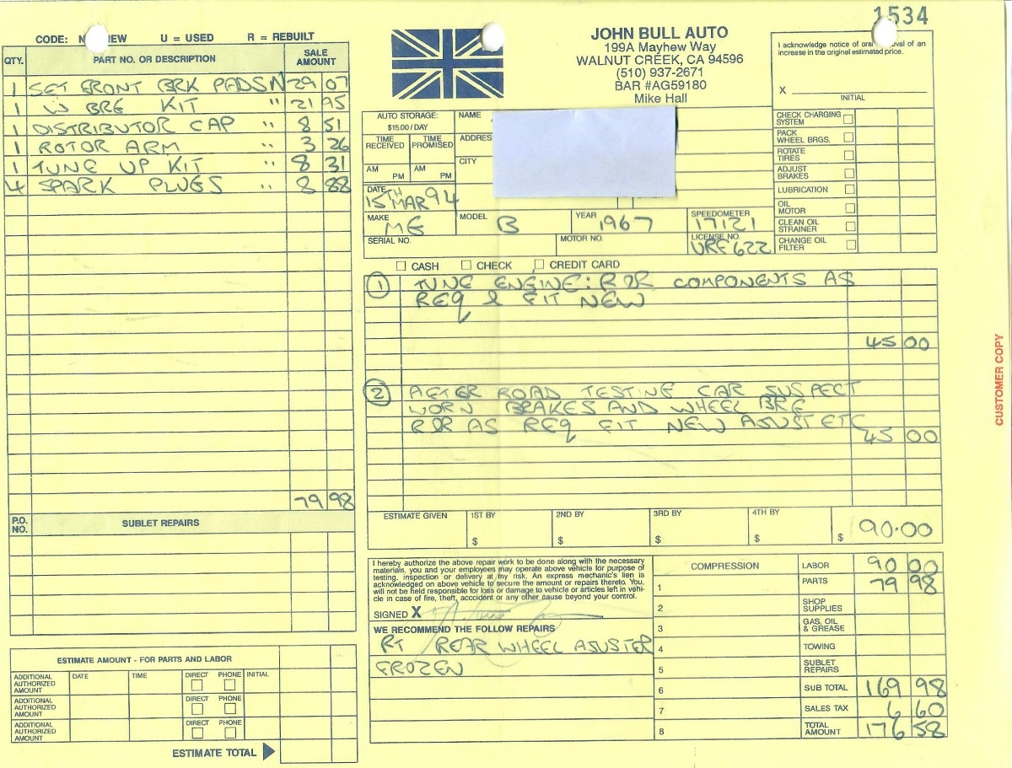 1534
CODE: N EW U = USED R = REBUILT
QTY. PART NO. OR DESCRIPTION SALE AMOUNT
1 SET FRONT BRK PADS N 29 07
1 " BRG KIT " 21 95
1 DISTRIBUTOR CAP " 8 51
1 ROTOR ARM " 3 26
1 TUNE UP KIT " 8 31
4 SPARK PLUGS " 8 88
79 98
P.O. NO. SUBLET REPAIRS
ESTIMATE AMOUNT - FOR PARTS AND LABOR
ADDITIONAL AUTHORIZED AMOUNT DATE TIME DIRECT PHONE INITIAL
ADDITIONAL AUTHORIZED AMOUNT DIRECT PHONE
ADDITIONAL AUTHORIZED AMOUNT DIRECT PHONE
ESTIMATE TOTAL
JOHN BULL AUTO
199A Mayhew Way
WALNUT CREEK, CA 94596
(510) 937-2671
BAR #AG59180
Mike Hall
I acknowledge notice of oral of an
increase in the original estimated price.
X
INITIAL
AUTO STORAGE:
$15.00 / DAY
NAME
TIME RECEIVED TIME PROMISED
ADDRES
AM PM AM PM
CITY
DATE
15TH MAR 94
MAKE MG MODEL B YEAR 1967 SPEEDOMETER 17121
SERIAL NO. MOTOR NO. LICENSE NO. URF622
CHECK CHARGING SYSTEM
PACK WHEEL BRGS.
ROTATE TIRES
ADJUST BRAKES
LUBRICATION
OIL MOTOR
CLEAN OIL STRAINER
CHANGE OIL FILTER
CASH CHECK CREDIT CARD
1 TUNE ENGINE: R&R COMPONENTS AS
REQ & FIT NEW
45 00
2 AFTER ROAD TESTING CAR SUSPECT
WORN BRAKES AND WHEEL BRG
R&R AS REQ FIT NEW ADJUST ETC
45 00
ESTIMATE GIVEN 1ST BY $ 2ND BY $ 3RD BY $ 4TH BY $ $ 90.00
I hereby authorize the above repair work to be done along with the necessary
materials. you and your employees may operate above vehicle for purpose of
testing, inspection or delivery at my risk. An express mechanic's lien is
acknowledged on above vehicle to secure the amount or repairs thereto. You.
will not be held responsible for loss or damage to vehicle or articles left in vehi-
cle in case of fire, theft, accident or any other cause beyond your control.
SIGNED X
WE RECOMMEND THE FOLLOW REPAIRS
RT REAR WHEEL ADJUSTER
FROZEN
COMPRESSION
1
2
3
4
5
6
7
8
LABOR 90 00
PARTS 79 98
SHOP SUPPLIES
GAS, OIL & GREASE
TOWING
SUBLET REPAIRS
SUB TOTAL 169 98
SALES TAX 6 60
TOTAL AMOUNT 176 58
CUSTOMER COPY